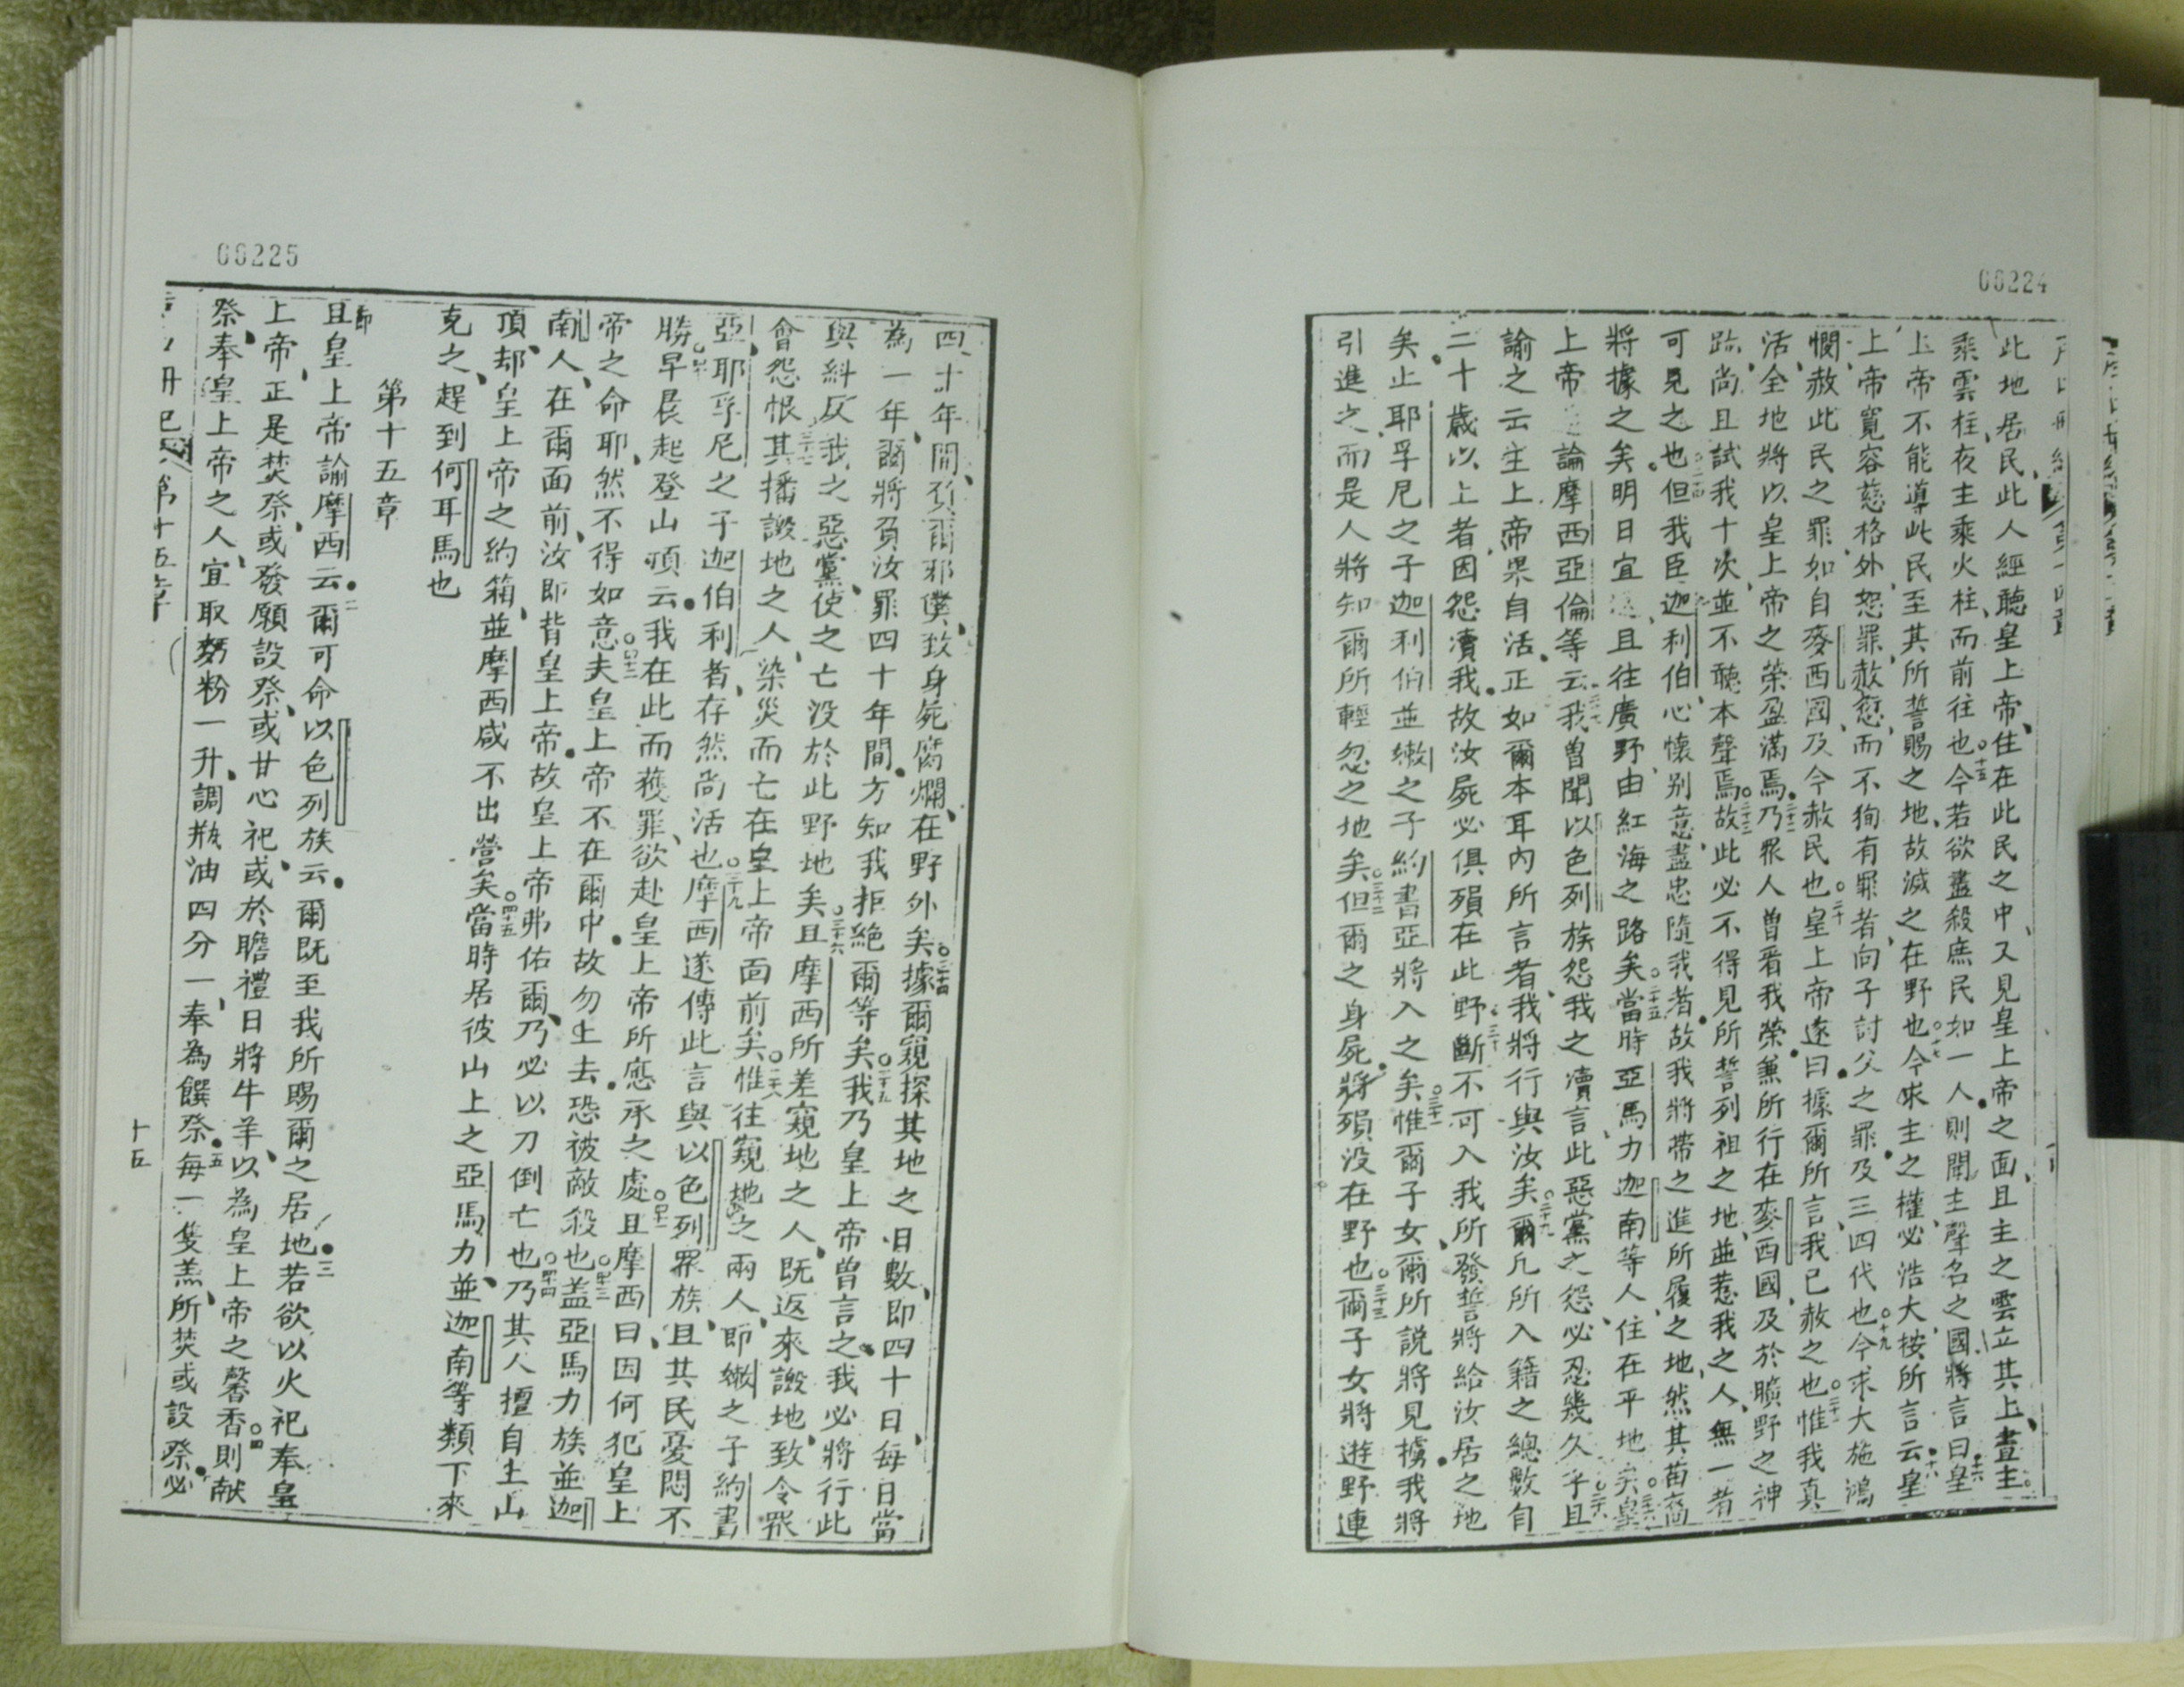 00224
此地居民此人經聽皇上帝住在此民之中又見皇上帝之面且主之雲立其上晝主
乘雲柱夜主乘火柱而前往也十五今若欲盡殺庶民如一人則聞主聲名之國將言曰十六皇
上帝不能導此民至其所誓賜之地故滅之在野也十七今求主之權必浩大按所言云十八皇
上帝寬容慈格外恕罪赦愆而不狥有罪者向子討父之罪及三四代也十九今求大施鴻
憫赦此民之罪如自麥西國及今赦民也二十皇上帝遂曰據爾所言我已赦之也二十一惟我真
活全地將以皇上帝之榮盈滿焉二十二乃眾人曾看我榮兼所行在麥西國及於曠野之神
跡尚且試我十次並不聽本聲焉二十三故此必不得見所誓列祖之地並惹我之人無一者
可見之也二十四但我臣迦利伯心懷別意盡忠隨我者故我將帶之進所履之地然其苗裔
將據之矣明日宜且往廣野由紅海之路矣二十五當時亞馬力迦南等人住在平地矣二十六皇
上帝諭摩西亞倫等云二十七我曾聞以色列族怨我之瀆言此惡黨之怨必忍幾久乎二十八且
諭之云主上帝果自活正如爾本耳內所言者我將行與汝矣二十九爾凡所入籍之總數自
二十歲以上者因怨瀆我故汝屍必俱殞在此野三十斷不可入我所發誓將給汝居之地
矣止耶孚尼之子迦利伯並嫩之子約書亞將入之矣三十一惟爾子女爾所說將見擄我將
引進之而是人將知爾所輕忽之地矣三十二但爾之身屍將殞沒在野也三十三爾子女將遊野連
00225
四十年間負爾邪僕致身屍腐爛在野外矣三十四據爾窺探其地之日數即四十日每日當
為一年爾將負汝罪四十年間方知我拒絕爾等矣三十五我乃皇上帝曾言之我必將行此
與糾反我之惡黨使之亡沒於此野地矣三十六且摩西所差窺地之人既返來譭地致令眾
會怨恨三十七其播譭地之人染災而亡在皇上帝面前矣三十八惟往窺地之兩人即嫩之子約書
亞耶孚尼之子迦伯利者存然尚活也三十九摩西遂傳此言與以色列眾族且其民憂悶不
勝四十早晨起登山頂云我在此而獲罪欲赴皇上帝所應承之處四十一且摩西曰因何犯皇上
帝之命耶然不得如意四十二夫皇上帝不在爾中故勿上去恐被敵殺也四十三盖亞馬力族並迦
南人在爾面前汝即背皇上帝故皇上帝弗佑爾乃必以刀倒亡也四十四乃其人擅自上山
頂却皇上帝之約箱並摩西咸不出營矣四十五當時居彼山上之亞馬力並迦南等類下來
克之趕到何耳馬也
第十五章
且皇上帝諭摩西云二爾可命以色列族云爾既至我所賜爾之居地三若欲以火祀奉皇
上帝正是焚祭或發願設祭或甘心祀或於瞻禮日將牛羊以為皇上帝之馨香四則献
祭奉皇上帝之人宜取麪粉一升調瓶油四分一奉為饌祭五每一隻羔所焚或設祭必
第十五章
十五